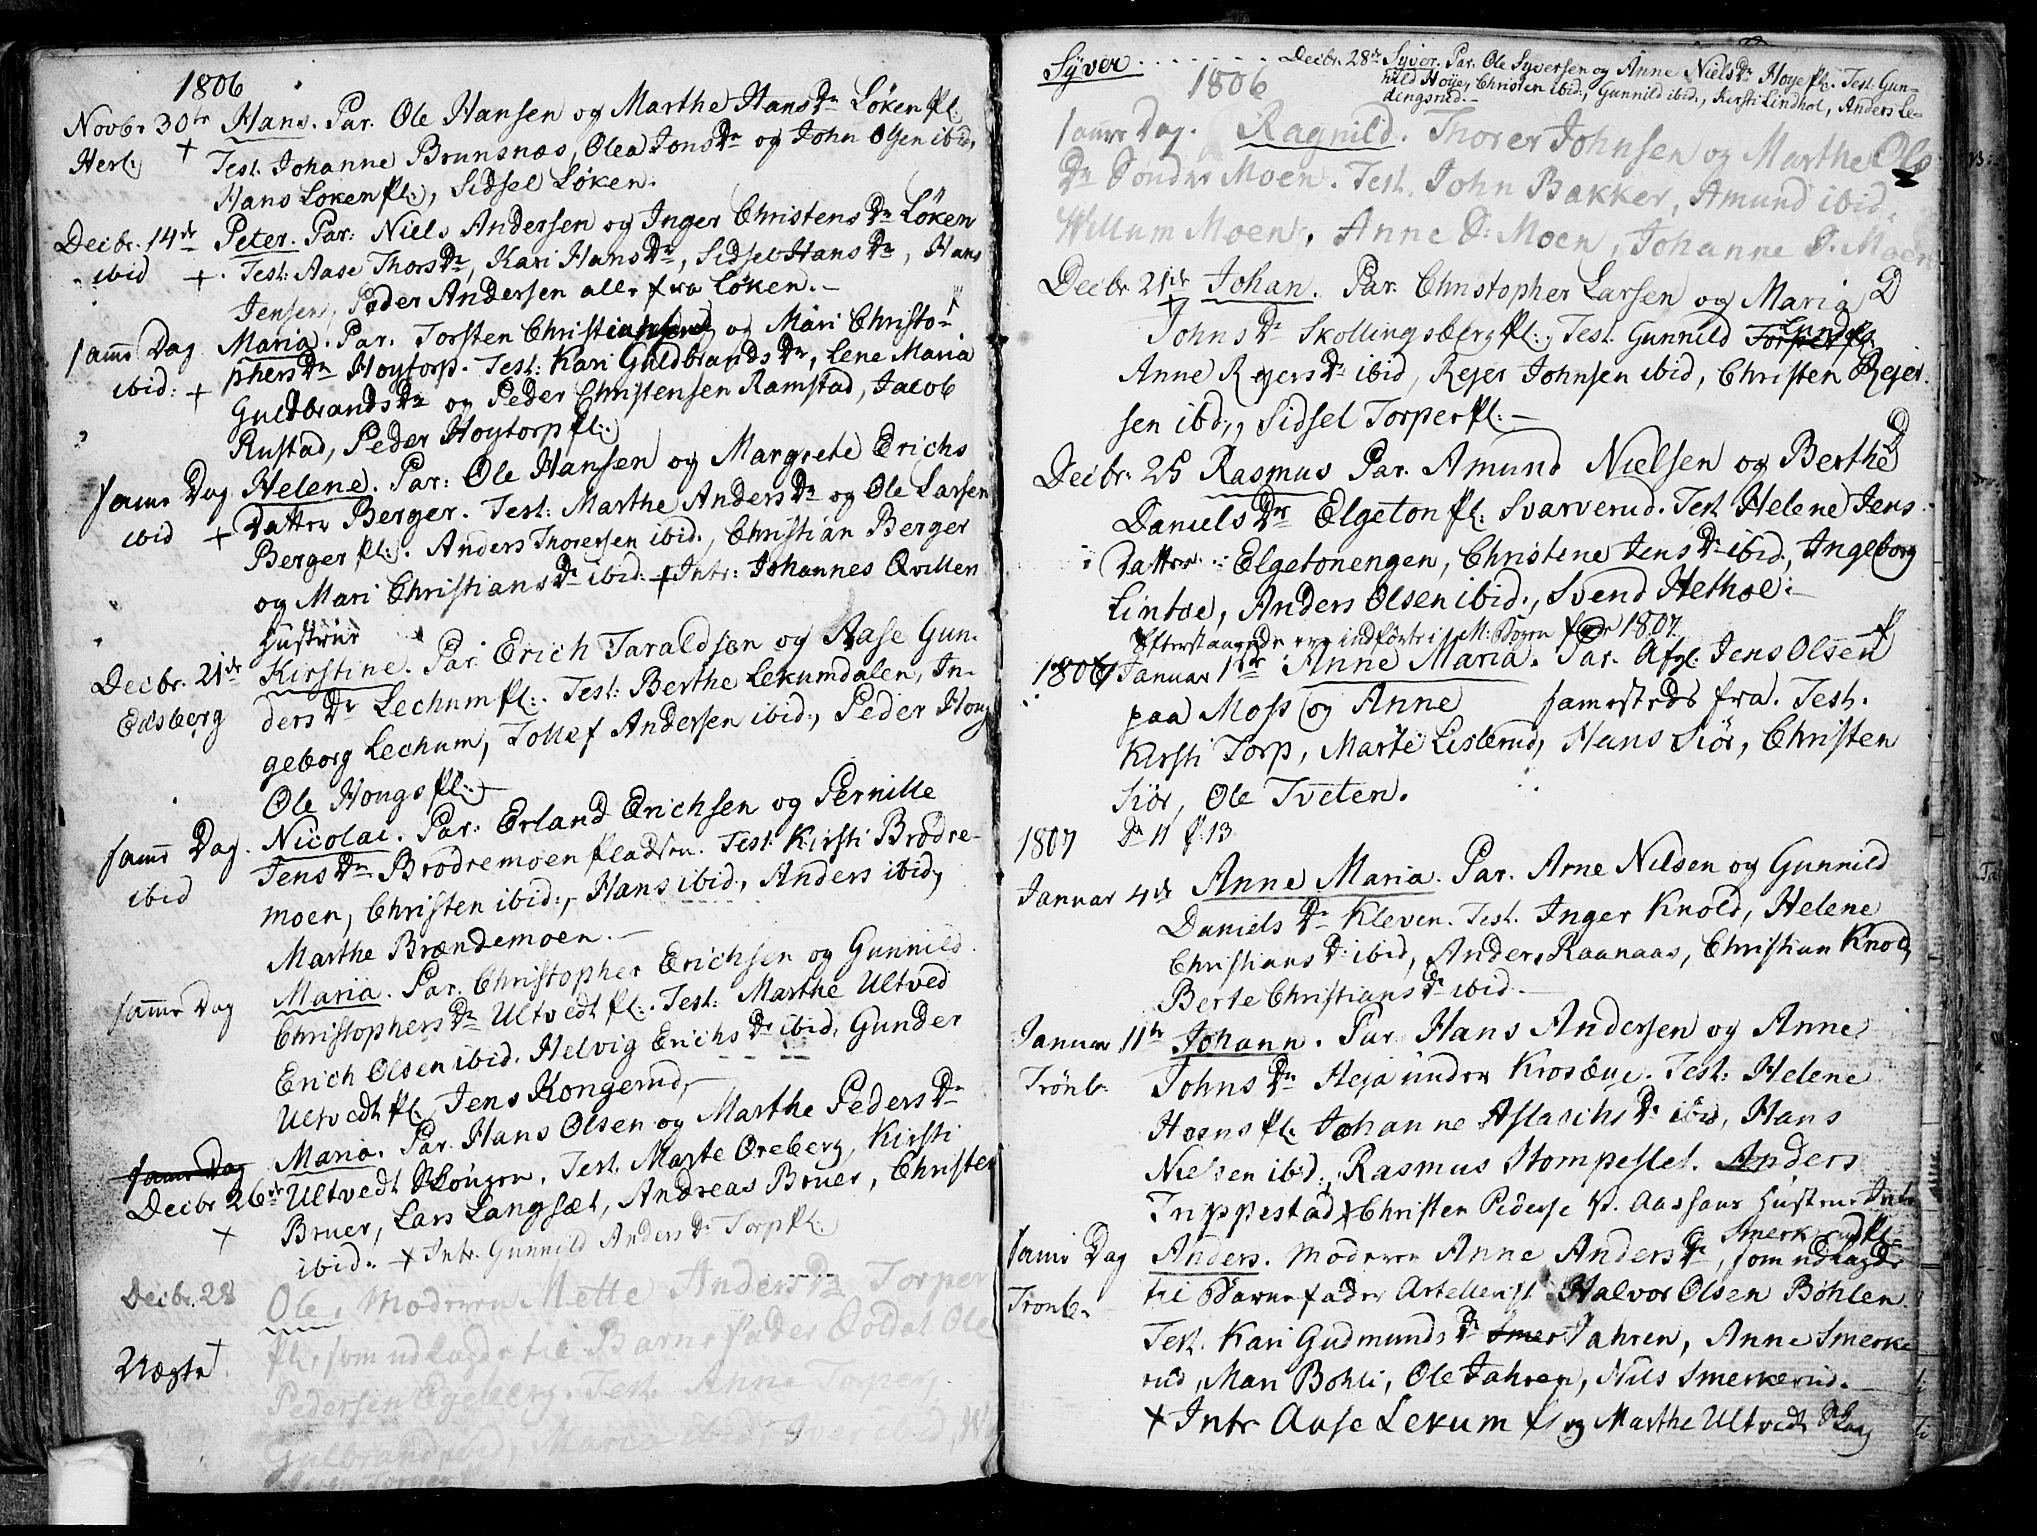 1806
Novbr 30te Hans. Par. Ole Hansen og Marthe HansDr Løken Pl:
Herl: + Test. Johanne Brunsnæs, Olea JonsDr og John Olsen ibid,
Hans Løken Pl:, Sidsel Løken.
Decbr. 14de Peter. Par: Niels Andersen og Inger ChristensDr Løken
ibid + Test: Aase ThorsDr, Kari HansDr, Sidsel HansDr, Hans
Jensen, Peder Andersen alle fra Løken.
samme Dag Maria. Par. Torsten Christiansen og Mari Christo-
ibid: + phersDr Høytorp. Test: Kari GuldbrandsDr, Lene Maria
GuldbrandsDr og Peder Christensen Ramstad, Jacob
Rustad, Peder Høytorp Pl:.
samme Dag Helene. Par: Ole Hansen og Margrete Erichs
ibid + Datter Berger. Test: Marthe AndersDr og Ole Larsen
Berger Pl:. Anders Thoresen ibid., Christian Berger
og Mari ChristiansDr ibid: + Intr: Johannes Qvillen
Hustrue
Decbr. 21de Kirstine. Par. Erich Taraldsen og Aase Gun-
Edsberg dersDr Lechum Pl:. Test: Berthe Lekumdalen, In-
geborg Lechum, Tollef Andersen ibid:, Peder Houg
Ole Hougs Pl:.
samme Dag. Nicolai. Par: Erland Erichsen og Pernille
ibid JensDr Brødremoen Pladsen. Test: Kirsti Brødre-
moen, Christen ibid:, Hans ibid:, Anders ibid,
Marthe Brændemoen.
samme Dag Maria. Par. Christopher Erichsen og Gunnild
ChristophersDr Ultvedt Pl:. Test: Marthe Ultved
Erich Olsen ibid. Helvig ErichsDr ibid. Gunder
Ultvedt Pl. Jens Kongerud,
samme Dag Maria. Par. Hans Olsen og Marthe PedersDr
Decbr 26de Ultvedt Skougen, Test. Marte Oreberg, Kirsti
+ Bruer, Lars Langsæt, Andreas Bruer, Christen
ibid. + Intr. Gunnild AndersDr Torp Pl:
Decbr. 28 Ole, Moderen Mette AndersDr Torper
Pl:, som udlagde til Barnefader Soldat Ole
Uægte + Pedersen Egeberg. Test. Anne Torper,
Gulbrand, Maria ibid, Iver ibid,
Syver . . . . . . . Decbr. 28de Syver. Par. Ole Syversen og Anne NielsDr Høye Pl. Test: Gun-
nild Høye, Christen ibid:, Gunnild ibid., Kirsti Lindhol, Anders Le-
dingsrud.
1806
samme Dag. Ragnild. Thorer Johnsen og Marthe Ols
Dr Sondre Moen. Test. John Bakker, Amund ibid.
Willum Moen, Anne S: Moen, Johanne S. Moen
Decbr 21de Johan. Par Christopher Larsen og Maria D
+ JohnsDr Skollingsberg Pl:, Test. Gunnild Torper Pl. Lund Pl.
Anne RejersDr ibid, Rejer Johnsen ibid, Christen Rejer-
sen ibd:, Sidsel Torper Pl:
Decbr. 25 Rasmus Par. Amund Nielsen og Berthe D
DanielsDr Elgeton Pl: Svarverud. Test Helene Jens
Datter Elgetonengen, Christene JensDr ibid, Ingeborg
Lintoe, Anders Olsen ibid., Svend Hethoe.
Efterstaaende ere indførte i M: Bogen for 1807
1806 Januar 1ste Anne Maria. Par. Afg. Jens Olsen
paa Moss og Anne samesteds fra. Test.
Kirsti Torp, Marte Lislerud, Hans Siør, Christen
Siør, Ole Tveten.
1807 Dr 11 P. 13
Januar 4de Anne Maria. Par. Arne Nilsen og Gunnild
DanielsDr Kleven. Test. Inger Knold, Helene
ChristiansDr ibid, Anders Raanaas, Christian Knold
Berte ChristiansDr ibid.
Januar 11te Johann. Par Hans Andersen og Anne
Trönb: JohnsDr Heja under Krosbye. Test: Helene
Hoens Pl. Johanne AslachsDr ibid, Hans
Nielsen ibid:, Rasmus Stompeslet. Anders
Trippestad + Christen Pedersen Aashaus Hustrue Intr.
Smerkerud Pl:
samme Dag Anders. Moderen Anne AndersDr, som udlagde
Tronb. til Barnefader Artellerist Halvor Olsen Bøhlen
Test. Kari GudmundsDr Smer Jahren, Anne Smerke
rud, Mari Bøhli, Ole Jahren, Nils Smerkerud.
+ Intr Aase Lekum og Marthe Ultvedt Skoug